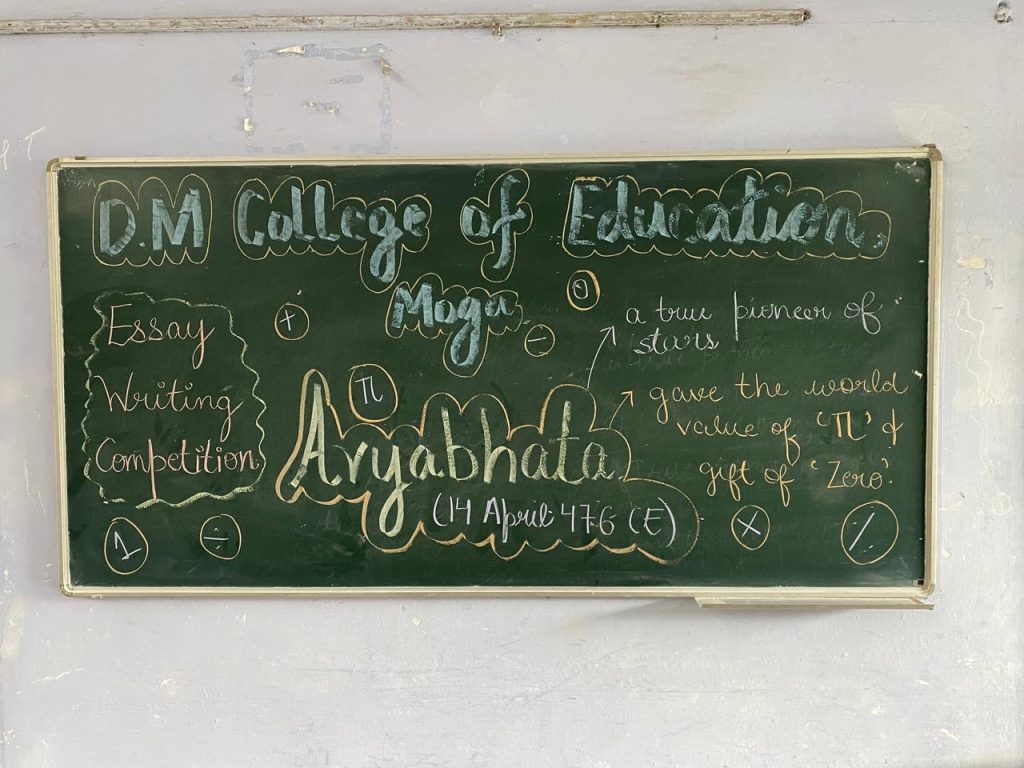 D.M College of Education,
Moga
Essay
Writing
Competition
+
0
−
π
Aryabhata
(14 April 476 CE)
a true pioneer of
stars
gave the world
value of 'π' &
gift of 'Zero'.
1
÷
×
%